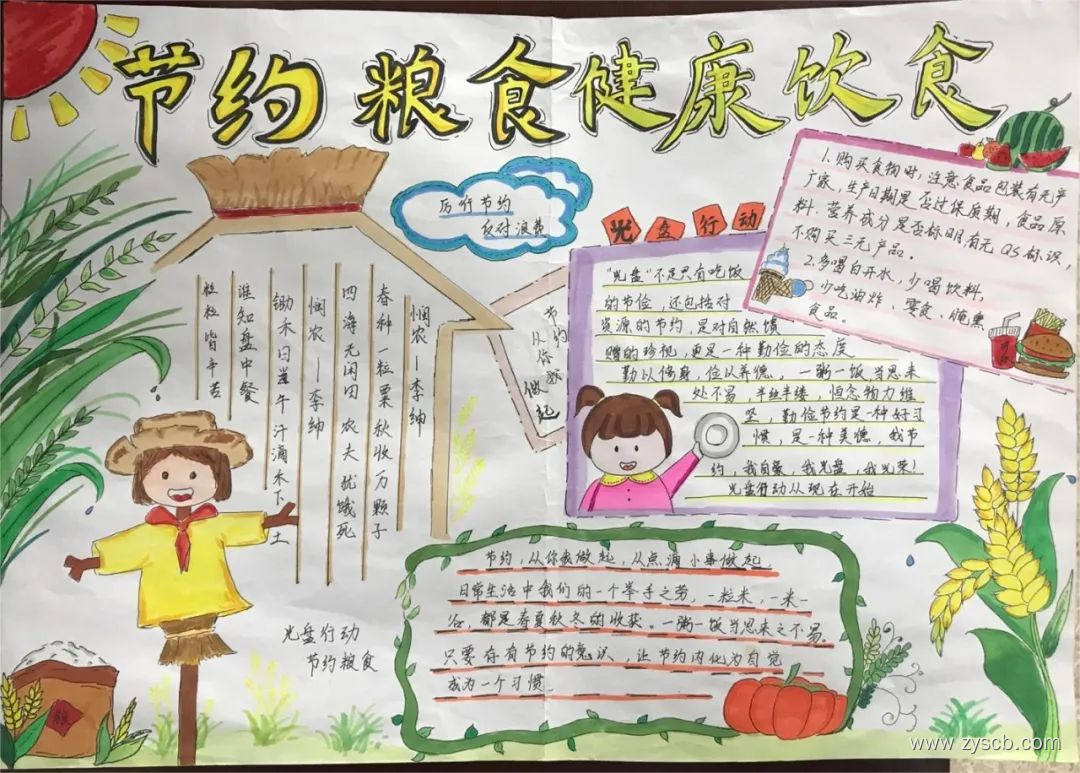 节约粮食健康饮食
厉行节约
反对浪费
光盘行动
1.购买食物时,注意食品包装有无产
厂家,生产日期是否过保质期,食品原
料.营养成分是否标明有无QS标识,
不购买三元产品。
2.多喝白开水,少喝饮料,
少吃油炸、零食、腌熏
食品。
"光盘"不是只有吃饭
的节俭,还包括对
资源的节约,是对自然馈
赠的珍视,更是一种勤俭的态度
勤以修身,俭以养德,一粥一饭当思来
处不易,半丝半缕,恒念物力维
坚,勤俭节约是一种好习
惯,是一种美德,我节
约,我自豪,我光荣!
光盘行动从现在开始
节约
从你我
做起
悯农—李绅
春种一粒粟秋收万颗子
四海无闲田 农夫犹饿死
悯农—李绅
锄禾日当午汗滴禾下土
谁知盘中餐
粒粒皆辛苦
节约,从你我做起,从点滴小事做起,
日常生活中我们的一个举手之劳,一粒米,一米一
谷,都是春夏秋冬的收获。一粥一饭当思来之不易。
只要存有节约的意识,让节约内化为自觉
成为一个习惯
光盘行动
节约粮食
粮
www.zyscb.com